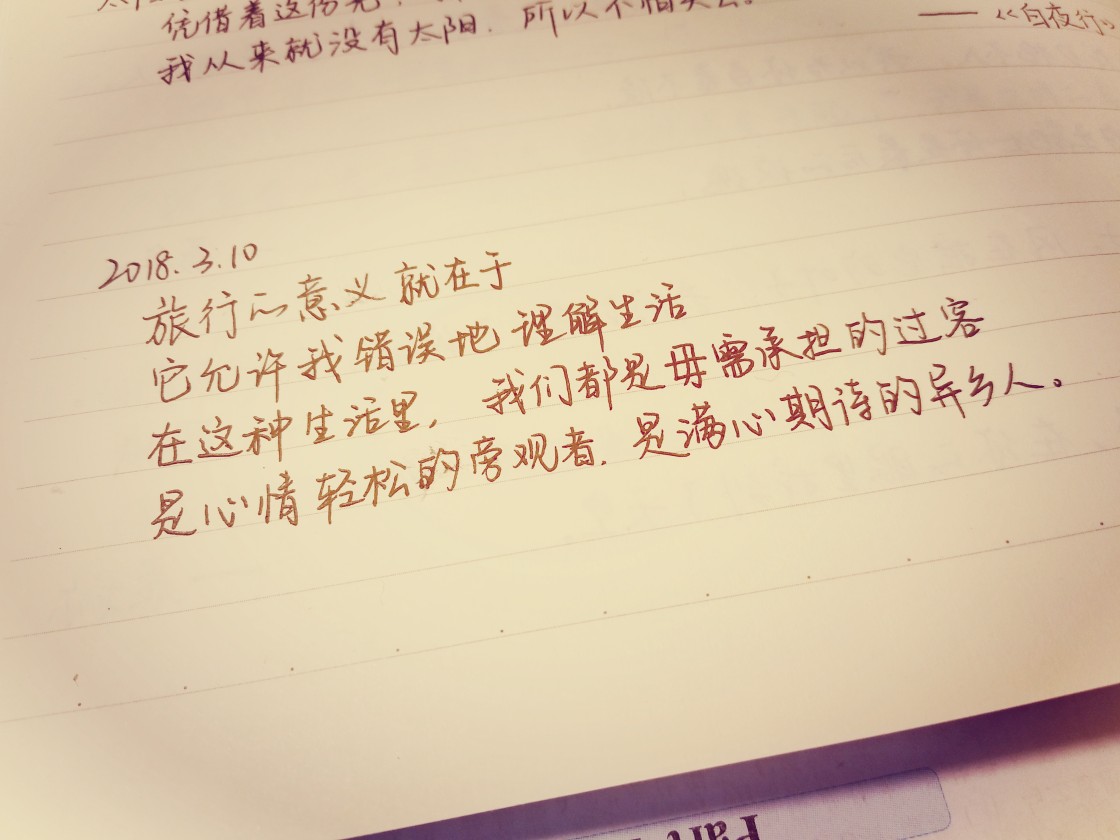 凭借着这份光，
我从来就没有太阳．所以不怕失去。
——《白夜行》
2018.3.10
旅行的意义就在于
它允许我错误地理解生活
在这种生活里，我们都是毋需承担的过客
是心情轻松的旁观者．是满心期待的异乡人。
Part